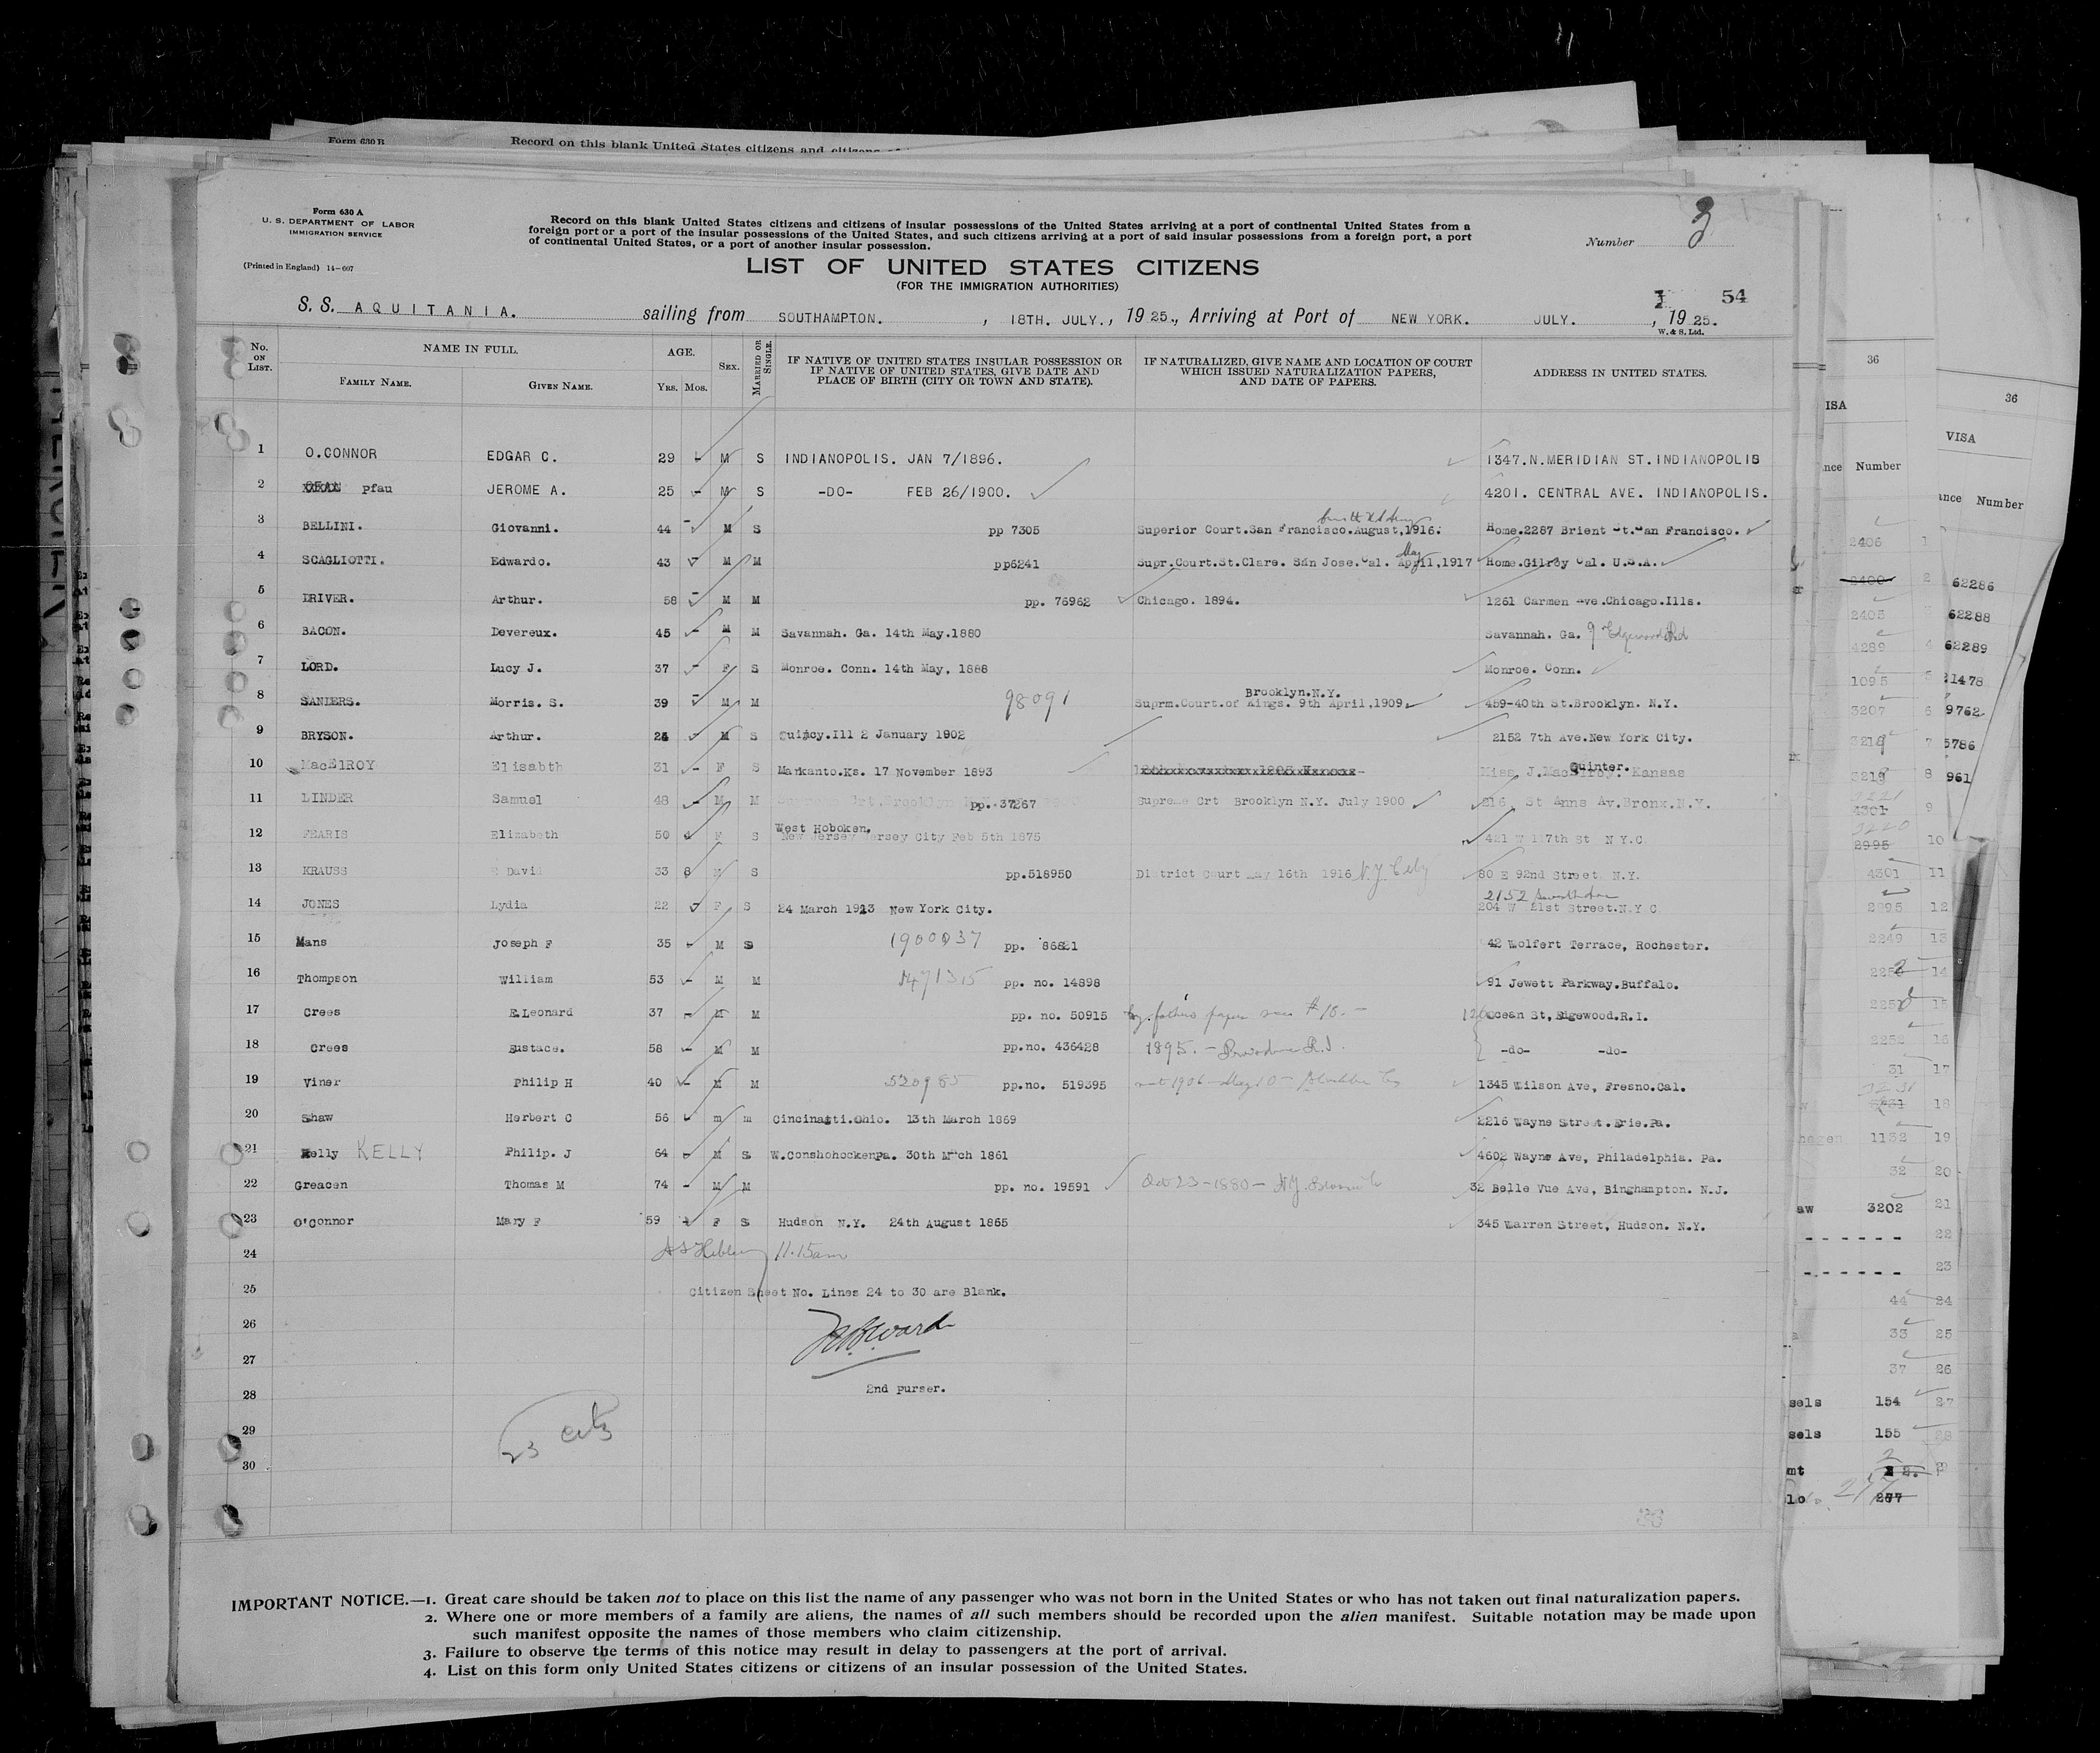 Form 630 B
Record on this blank United States citizens and citizens of
Form 630 A
U. S. DEPARTMENT OF LABOR
IMMIGRATION SERVICE
(Printed in England) 14-607
Record on this blank United States citizens and citizens of insular possessions of the United States arriving at a port of continental United States from a
foreign port or a port of the insular possessions of the United States, and such citizens arriving at a port of said insular possessions from a foreign port, a port
of continental United States, or a port of another insular possession.
Number 3
LIST OF UNITED STATES CITIZENS
(FOR THE IMMIGRATION AUTHORITIES)
54
S. S. AQUITANIA. sailing from SOUTHAMPTON. , 18TH. JULY., 1925., Arriving at Port of NEW YORK. JULY. , 1925.
W. & S. Ltd.
No. ON LIST. NAME IN FULL. AGE. Sex. MARRIED OR SINGLE.
FAMILY NAME. GIVEN NAME. Yrs. Mos.
IF NATIVE OF UNITED STATES INSULAR POSSESSION OR
IF NATIVE OF UNITED STATES, GIVE DATE AND
PLACE OF BIRTH (CITY OR TOWN AND STATE).
IF NATURALIZED, GIVE NAME AND LOCATION OF COURT
WHICH ISSUED NATURALIZATION PAPERS,
AND DATE OF PAPERS.
ADDRESS IN UNITED STATES.
1 O.CONNOR EDGAR C. 29 - M S INDIANOPOLIS. JAN 7/1896. 1347.N.MERIDIAN ST.INDIANOPOLIS
2 Pfau JEROME A. 25 - M S -DO- FEB 26/1900. 4201. CENTRAL AVE. INDIANOPOLIS.
3 BELLINI. Giovanni. 44 - M S pp 7305 Superior Court.San Francisco.August,1916. Home.2287 Brient St.San Francisco.
4 SCAGLIOTTI. Edwardo. 43 - M M pp6241 Supr.Court.St.Clare. San Jose.Cal. April,1917 May Home.Gilroy Cal. U.S.A.
5 DRIVER. Arthur. 58 - M M pp. 76962 Chicago. 1894. 1261 Carmen Ave.Chicago.Ills.
6 BACON. Devereux. 45 - M M Savannah. Ga. 14th May.1880 Savannah. Ga. 9 Edgewood Rd
7 LORD. Lucy J. 37 - F S Monroe. Conn. 14th May, 1888 Monroe. Conn.
8 SANDERS. Morris. S. 39 - M M 98091 Brooklyn.N.Y.
Suprm.Court.of Kings. 9th April,1909 459-40th St.Brooklyn. N.Y.
9 BRYSON. Arthur. 24 - M S Quincy.Ill 2 January 1902 2152 7th Ave.New York City.
10 MacElROY Elisabth 31 - F S Mankanto.Ks. 17 November 1893 Miss J.MacElroy. Kansas Quinter.
11 LINDER Samuel 48 - M M pp. 37267 Supreme Crt Brooklyn N.Y. July 1900 216, St Anns Av.Bronx.N.Y.
12 FEARIS Elizabeth 50 4 F S West Hoboken.
New Jersey Jersey City Feb 5th 1875 421 W 117th St N Y.C
13 KRAUSS E David 33 8 M S pp.518950 District Court May 16th 1916 N.Y. City 80 E 92nd Street N.Y.
14 JONES Lydia 22 - F S 24 March 1913 New York City. 2152 Seventh Ave
204 W 21st Street.N.Y C
15 Mans Joseph F 35 - M S pp. 86821 42 Wolfert Terrace, Rochester.
16 Thompson William 53 - M M 471315 pp. no. 14898 91 Jewett Parkway.Buffalo.
17 Crees E.Leonard 37 - M M pp. no. 50915 by father's paper see #18. - 120 Ocean St, Edgewood.R.I.
18 Crees Eustace. 58 - M M pp.no. 436428 1895. - Providence R.I. -do- -do-
19 Viner Philip H 40 - M M 520985 pp.no. 519395 1345 Wilson Ave, Fresno.Cal.
20 Shaw Herbert C 56 - m m Cincinatti.Ohio. 13th March 1869 2216 Wayne Street.Erie.Pa.
21 Kelly KELLY Philip. J 64 - M S W.ConshohockenPa. 30th March 1861 4602 Wayne Ave, Philadelphia. Pa.
22 Greacen Thomas M 74 - M M pp. no. 19591 Oct 23-1880- N.Y. 32 Belle Vue Ave, Binghampton. N.J.
23 O'Connor Mary F 59 - F S Hudson N.Y. 24th August 1865 345 Warren Street, Hudson. N.Y.
24 11.15am
25 Citizen Sheet No. Lines 24 to 30 are Blank.
26
27
28 2nd purser.
29 23 cits
30
IMPORTANT NOTICE.—1. Great care should be taken not to place on this list the name of any passenger who was not born in the United States or who has not taken out final naturalization papers.
2. Where one or more members of a family are aliens, the names of all such members should be recorded upon the alien manifest. Suitable notation may be made upon
such manifest opposite the names of those members who claim citizenship.
3. Failure to observe the terms of this notice may result in delay to passengers at the port of arrival.
4. List on this form only United States citizens or citizens of an insular possession of the United States.
36
ISA
Number
2406 1
2
2405
4289 4
1095
3207 6
7
8
9
10
4301 11
2995 12
2249 13
14
15
2252 16
31 17
18
1132 19
32 20
aw 3202 21
22
23
44 24
33 25
37 26
sels 154 27
sels 155 28
mt
277
36
VISA
Number
62286
62288
62289
21478
9762
5786
961